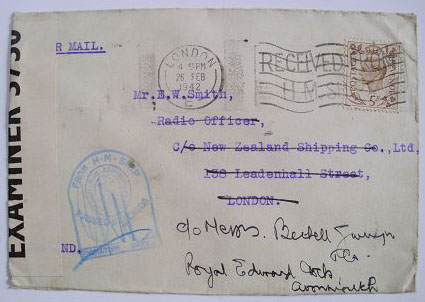 EXAMINER 5730
R MAIL.
LONDON
4 PM
26 FEB
1942
E
RECEIVED FROM
H.M. SHIP
Mr. E.W. Smith,
Radio Officer,
C/o New Zealand Shipping Co., Ltd,
138 Leadenhall Street,
LONDON.
FROM H·M·SHIP
ND.
c/o Messrs.
Royal Edward Dock
Avonmouth